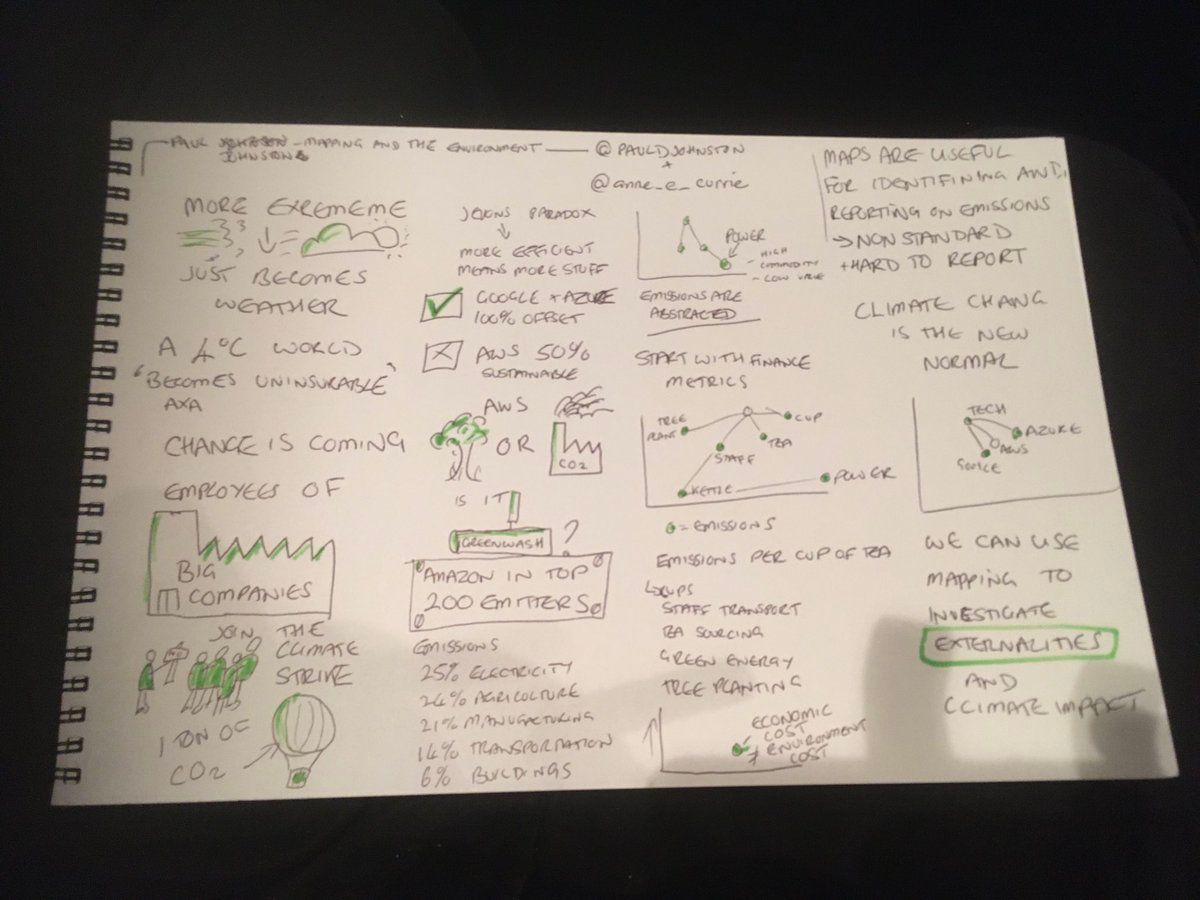 PAUL JOHNSON - MAPPING AND THE ENVIRONMENT — @PAULDJOHNSTON
JOHNSTON
+
@anne_e_currie
MORE EXREMEME
JUST BECOMES
WEATHER
A 4°C WORLD
"BECOMES UNINSURABLE"
AXA
CHANGE IS COMING
EMPLOYEES OF
BIG
COMPANIES
JOIN THE
CLIMATE
STRIKE
1 TON OF
CO2
JEVONS PARADOX
MORE EFFICIENT
MEANS MORE STUFF
GOOGLE + AZURE
100% OFFSET
AWS 50%
SUSTAINABLE
AWS
OR
CO2
IS IT
GREENWASH ?
AMAZON IN TOP
200 EMITTERS
EMISSIONS
25% ELECTRICITY
24% AGRICULTURE
21% MANUFACTURING
14% TRANSPORTATION
6% BUILDINGS
POWER
- HIGH
COMMODITY
- LOW VALUE
EMISSIONS ARE
ABSTRACTED
START WITH FINANCE
METRICS
TREE
PLANT
CUP
TEA
STAFF
KETTLE
POWER
= EMISSIONS
EMISSIONS PER CUP OF TEA
STAFF TRANSPORT
TEA SOURCING
GREEN ENERGY
TREE PLANTING
ECONOMIC
COST
≠ ENVIRONMENT
COST
MAPS ARE USEFUL
FOR IDENTIFINING AND
REPORTING ON EMISSIONS
→ NON STANDARD
+ HARD TO REPORT
CLIMATE CHANG
IS THE NEW
NORMAL
TECH
AZURE
AWS
WE CAN USE
MAPPING TO
INVESTIGATE
EXTERNALITIES
AND
CLIMATE IMPACT